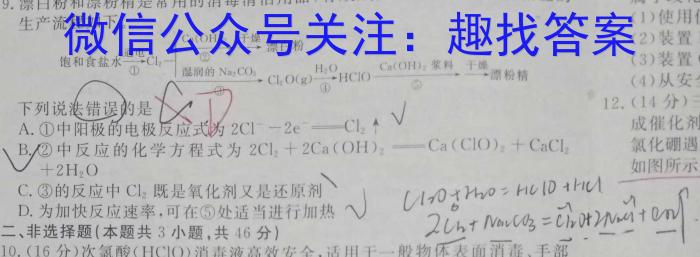 9.漂白粉和漂粉精是常用的消毒
生产流
微信公众号关注：趣找答案
饱和食盐水 ① Cl₂ 干燥 漂白粉
湿润的 Na₂CO₃ ③ Cl₂O(g) H₂O ④ HClO Ca(OH)₂ 浆料 ⑤ 干燥 漂粉精
下列说法错误的是
D
A. ①中阳极的电极反应式为 2Cl⁻－2e⁻══Cl₂↑
B. ②中反应的化学方程式为 2Cl₂＋2Ca(OH)₂══Ca(ClO)₂＋CaCl₂
＋2H₂O
C. ③的反应中 Cl₂ 既是氧化剂又是还原剂
D. 为加快反应速率,可在⑤处适当进行加热
2Cl₂+Na₂CO₃=Cl₂O+2NaCl+CO₂
二、非选择题(本题共 3 小题,共 46 分)
10.(16 分)次氯酸(HClO)消毒液高效安全,适用于一般物体表面消毒、手部
(1)使用
(2)装置
(3)装置
(4)从安
12.(14 分)
成催化剂
氯化硼遇
如图所示